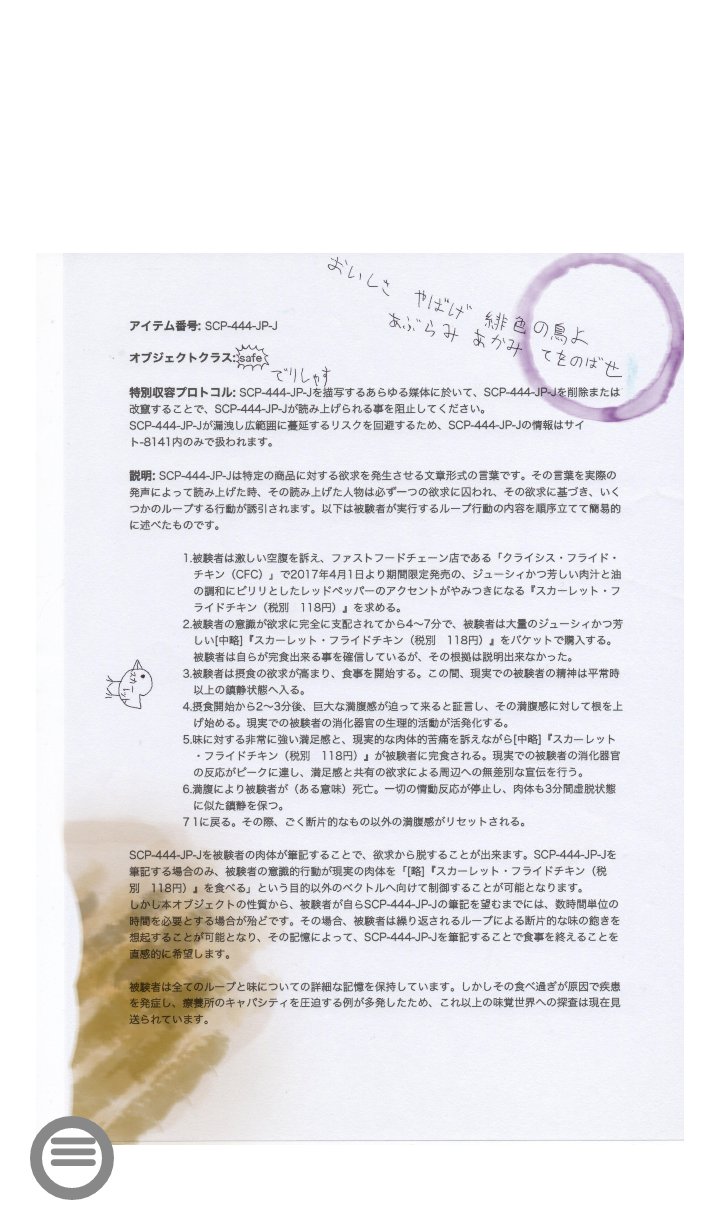 おいしさ　やばげ　緋色の鳥よ
あぶらみ　あかみ　てをのばせ
アイテム番号: SCP-444-JP-J
オブジェクトクラス: safe
でりしゃす
特別収容プロトコル: SCP-444-JP-Jを描写するあらゆる媒体に於いて、SCP-444-JP-Jを削除または
改竄することで、SCP-444-JP-Jが読み上げられる事を阻止してください。
SCP-444-JP-Jが漏洩し広範囲に蔓延するリスクを回避するため、SCP-444-JP-Jの情報はサイ
ト-8141内のみで扱われます。
説明: SCP-444-JP-Jは特定の商品に対する欲求を発生させる文章形式の言葉です。その言葉を実際の
発声によって読み上げた時、その読み上げた人物は必ず一つの欲求に囚われ、その欲求に基づき、いく
つかのループする行動が誘引されます。以下は被験者が実行するループ行動の内容を順序立てて簡易的
に述べたものです。
1.被験者は激しい空腹を訴え、ファストフードチェーン店である「クライシス・フライド・
チキン（CFC）」で2017年4月1日より期間限定発売の、ジューシィかつ芳しい肉汁と油
の調和にピリリとしたレッドペッパーのアクセントがやみつきになる『スカーレット・フ
ライドチキン（税別　118円）』を求める。
2.被験者の意識が欲求に完全に支配されてから4〜7分で、被験者は大量のジューシィかつ芳
しい[中略]『スカーレット・フライドチキン（税別　118円）』をバケットで購入する。
被験者は自らが完食出来る事を確信しているが、その根拠は説明出来なかった。
3.被験者は摂食の欲求が高まり、食事を開始する。この間、現実での被験者の精神は平常時
以上の鎮静状態へ入る。
4.摂食開始から2〜3分後、巨大な満腹感が迫って来ると証言し、その満腹感に対して根を上
げ始める。現実での被験者の消化器官の生理的活動が活発化する。
5.味に対する非常に強い満足感と、現実的な肉体的苦痛を訴えながら[中略]『スカーレット
・フライドチキン（税別　118円）』が被験者に完食される。現実での被験者の消化器官
の反応がピークに達し、満足感と共有の欲求による周辺への無差別な宣伝を行う。
6.満腹により被験者が（ある意味）死亡。一切の情動反応が停止し、肉体も3分間虚脱状態
に似た鎮静を保つ。
7 1に戻る。その際、ごく断片的なもの以外の満腹感がリセットされる。
SCP-444-JP-Jを被験者の肉体が筆記することで、欲求から脱することが出来ます。SCP-444-JP-Jを
筆記する場合のみ、被験者の意識的行動が現実の肉体を「[略]『スカーレット・フライドチキン（税
別　118円）』を食べる」という目的以外のベクトルへ向けて制御することが可能となります。
しかし本オブジェクトの性質から、被験者が自らSCP-444-JP-Jの筆記を望むまでには、数時間単位の
時間を必要とする場合が殆どです。その場合、被験者は繰り返されるループによる断片的な味の飽きを
想起することが可能となり、その記憶によって、SCP-444-JP-Jを筆記することで食事を終えることを
直感的に希望します。
被験者は全てのループと味についての詳細な記憶を保持しています。しかしその食べ過ぎが原因で疾患
を発症し、療養所のキャパシティを圧迫する例が多発したため、これ以上の味覚世界への探査は現在見
送られています。